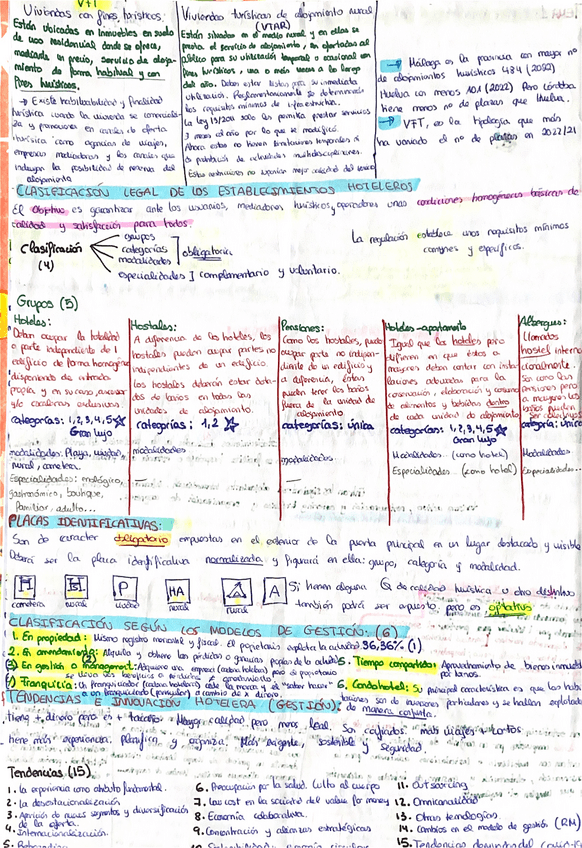 VFT
Viviendas con fines turísticos:
Están ubicadas en inmuebles en suelo
de uso residencial donde se ofrece,
mediante precio, servicio de aloja-
miento de forma habitual y con
fines turísticos.
→ Existe habitualidad y finalidad
turística cuando la vivienda se comerciali-
za y promociona en canales de oferta
turística como agencias de viajes,
empresas mediadoras y los canales que
incluyan la posibilidad de reserva del
alojamiento
Viviendas turísticas de alojamiento rural
(VTAR)
Están situadas en el medio rural y en ellas se
presta el servicio de alojamiento,
público para su utilización temporal o estacional con
fines turísticos, una o más veces a lo largo
del año. Deben estar listas para su inmediata
utilización.
los requisitos mínimos de infraestructura.
La ley 13/2011 solo les permitía prestar servicios
3 meses al año por lo que se modificó.
Ahora estas no tienen limitaciones temporales
→ Málaga es la provincia con mayor nº
de alojamientos turísticos 484 (2022)
Huelva con menos 101 (2022) pero Córdoba
tiene menos nº de plazas que Huelva.
→ VFT, es la tipología que más
ha variado el nº de plazas en 2022/21
CLASIFICACIÓN LEGAL DE LOS ESTABLECIMIENTOS HOTELEROS
El objetivo es garantizar ante los usuarios, mediadores turísticos, operadores unas condiciones homogéneas básicas de
calidad y satisfacción para todos.
Clasificación
(4)
grupos
categorías
modalidades
obligatoria
especialidades ] complementario y voluntario.
La regulación establece unos requisitos mínimos
comunes y específicos.
Grupos (5)
Hoteles:
Deben ocupar la totalidad
o parte independiente de 1
edificio de forma homogénea
disponiendo de entrada
propia y en su caso, ascensor
y/o escaleras exclusivas
categorías: 1,2,3,4,5☆
Gran lujo
modalidades: Playa, ciudad,
rural, carretera.
Especialidades: enológico,
gastronómico, boutique,
familiar, adulto...
Hostales:
A diferencia de los hoteles, los
hostales pueden ocupar partes no
independientes de un edificio.
Los hostales deberán estar dota-
dos de baños en todas las
unidades de alojamiento.
categorías: 1,2 ☆
modalidades
—
Pensiones:
Como los hostales, pueden
ocupar parte no indepen-
diente de un edificio y
a diferencia, estas
pueden tener los baños
fuera de la unidad de
alojamiento
categorías: única
modalidades
—
Hoteles-apartamento
Igual que los hoteles pero
difieren en que éstos a
mayores deben contar con insta-
laciones adecuadas para la
conservación, elaboración y consumo
de alimentos y bebidas dentro
de cada unidad de alojamiento
categorías: 1,2,3,4,5☆
Gran lujo
Modalidades... (como hotel)
Especialidades... (como hotel)
Albergues:
Llamados
hostel interna
cionalmente.
Son como las
pensiones pero
a mayores los
baños pueden
ser colectivos
categoría: única
Modalidades
Especialidades...
PLACAS IDENTIFICATIVAS:
Son de caracter obligatorio expuestas en el exterior de la puerta principal en un lugar destacado y visible
Deberá ser la placa identificativa normalizada y figurará en ella: grupo, categoría y modalidad.
H
carretera
Hs
rural
P
ciudad
HA
rural
A
rural
A
Si tienen alguna Q de calidad turística u otro distintivo
también podrá ser expuesto, pero es optativo
CLASIFICACIÓN SEGÚN LOS MODELOS DE GESTIÓN: (6)
1. En propiedad: Mismo registro mercantil y fiscal. El propietario explota la actividad 36,36% (1)
2. En arrendamiento: Alquila y obtiene las pérdidas o ganacias propias de la actividad
(2)
3) En gestión o management: Adquiere una empresa (cadena hotelera) pero el propietario
se lleva los beneficios a dedicarle el arrendamiento
4) Franquicia: Un franquiciador (cadena hotelera) cede la marca y el "saber hacer"
a un franquiciado (pensador) a cambio de x dinero
5. Tiempo compartido: Aprovechamiento de bienes inmuebles
por turnos.
6. Condohotel: Su principal característica es que las habi-
taciones son de inversores particulares y se hallan explotadas
de manera conjunta.
TENDENCIAS E INNOVACIÓN HOTELERA (GESTIÓN):
tiene + dinero pero es + tacaño. Mayor calidad pero menos leal. Son cojidos. más viajes + cortos
tiene más experiencia. Planifica y organiza. Más exigente, sostenible y Seguridad
Tendencias (15)
1. La experiencia como atributo fundamental.
2. La desestacionalización
3. Aparición de nuevos segmentos y diversificación
de la oferta.
4. Internacionalización.
5. Robotización
6. Preocupación por la salud. Culto al cuerpo
7. Low cost en la sociedad del value for money
8. Economía colaborativa.
9. Concentración y alianzas estratégicas
10. Sostenibilidad: economía circular
11. Outsourcing
12. Omnicanalidad
13. Otras tecnologías
14. Cambios en el modelo de gestión (RM)
15. Tendencias